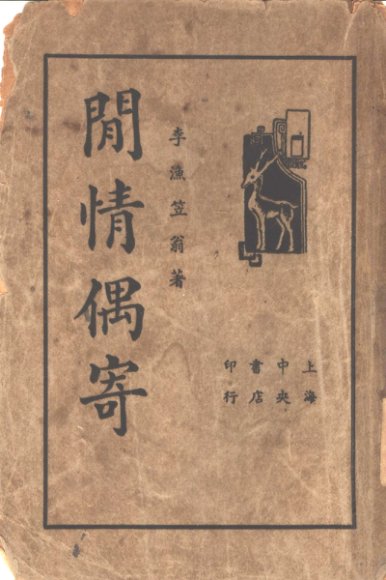 上海
中央
書店
印行
李漁笠翁著
閒情偶寄